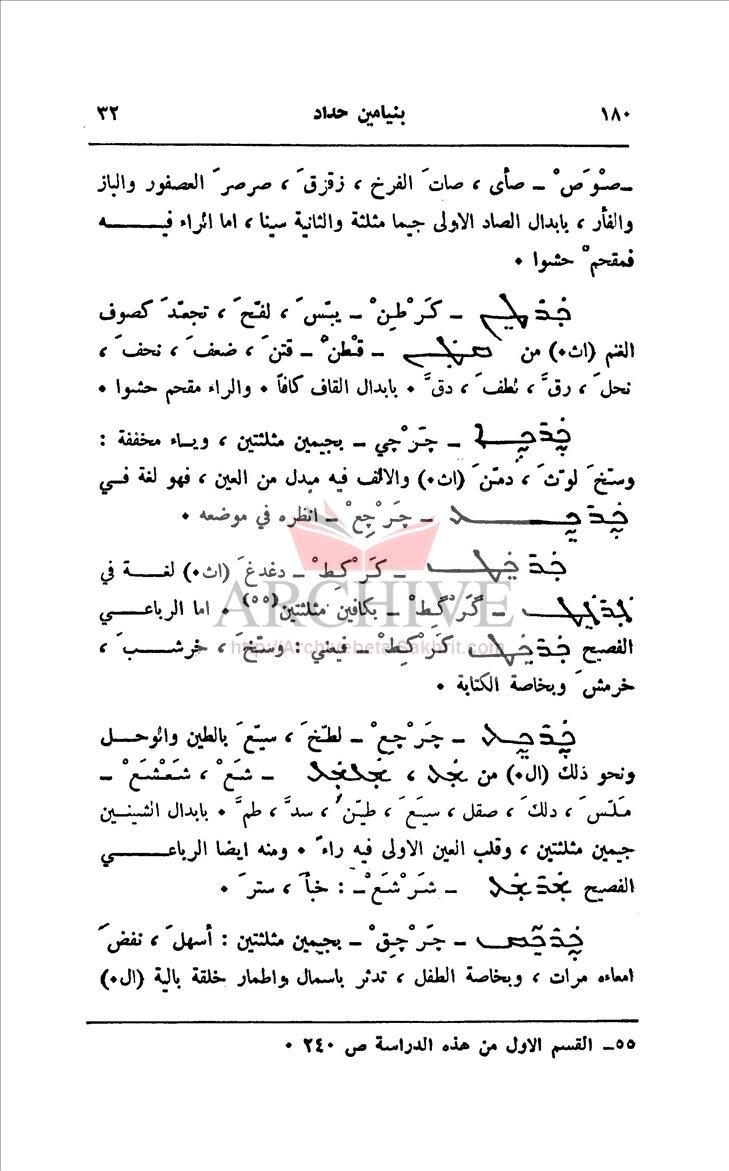 ١٨٠ بنيامين حداد ٣٢
ـصْوَصْ ـ صأى ، صاتَ الفرخ ، زقزقَ ، صرصرَ العصفور والباز
والفأر ، بابدال الصاد الاولى جيما مثلثة والثانية سينا ، اما الراء فيـه
فمقحمْ حشوا .
ـ كَرْطِنْ ـ يبّسَ ، لفّحَ ، تجعّدَ كصوف
الغنم (اث٠) من ـ قْطنْ ـ قتنَ ، ضعفَ ، نحفَ ،
نحلَ ، رقَّ ، لطفَ ، دقَّ . بابدال القاف كافاً . والراء مقحم حشوا .
ـ چَرْچي ـ بجيمين مثلثتين ، وياء مخففة :
وسّخَ لوّثَ ، دمّنَ (اث٠) والالف فيه مبدل من العين ، فهو لغة في
ـ چَرْچِعْ ـ انظره في موضعه .
ـ كَرْكطْ ـ دغدغَ (اث٠) لغة في
ـ گَرْگطْ ـ بكافين مثلثتين(٥٥) . اما الرباعي
الفصيح كَرْكِطْ ـ فيعني : وسّخَ ، خرشبَ ،
خرمشَ وبخاصة الكتابة .
ـ چَرْچعْ ـ لطّخَ ، سيّعَ بالطين والوحل
ونحو ذلك (ال٠) من ، ـ شَعْ ، شَعْشَعْ ـ
مَلّسَ ، دلكَ ، صقل ، سيّعَ ، طيّنَ ، سدَّ ، طمَّ . بابدال الشينين
جيمين مثلثتين ، وقلب العين الاولى فيه راءً . ومنه ايضا الرباعي
الفصيح ـ شَرْشَعْ ـ : خبأَ ، سترَ .
ـ چَرْچقْ ـ بجيمين مثلثتين : أسهلَ ، نفضَ
امعاءه مرات ، وبخاصة الطفل ، تدثر باسمال واطمار خلقة بالية (ال٠)
٥٥ـ القسم الاول من هذه الدراسة ص ٢٤٠ .
ARCHIVE
http://Archivebeta.Sakhrit.com